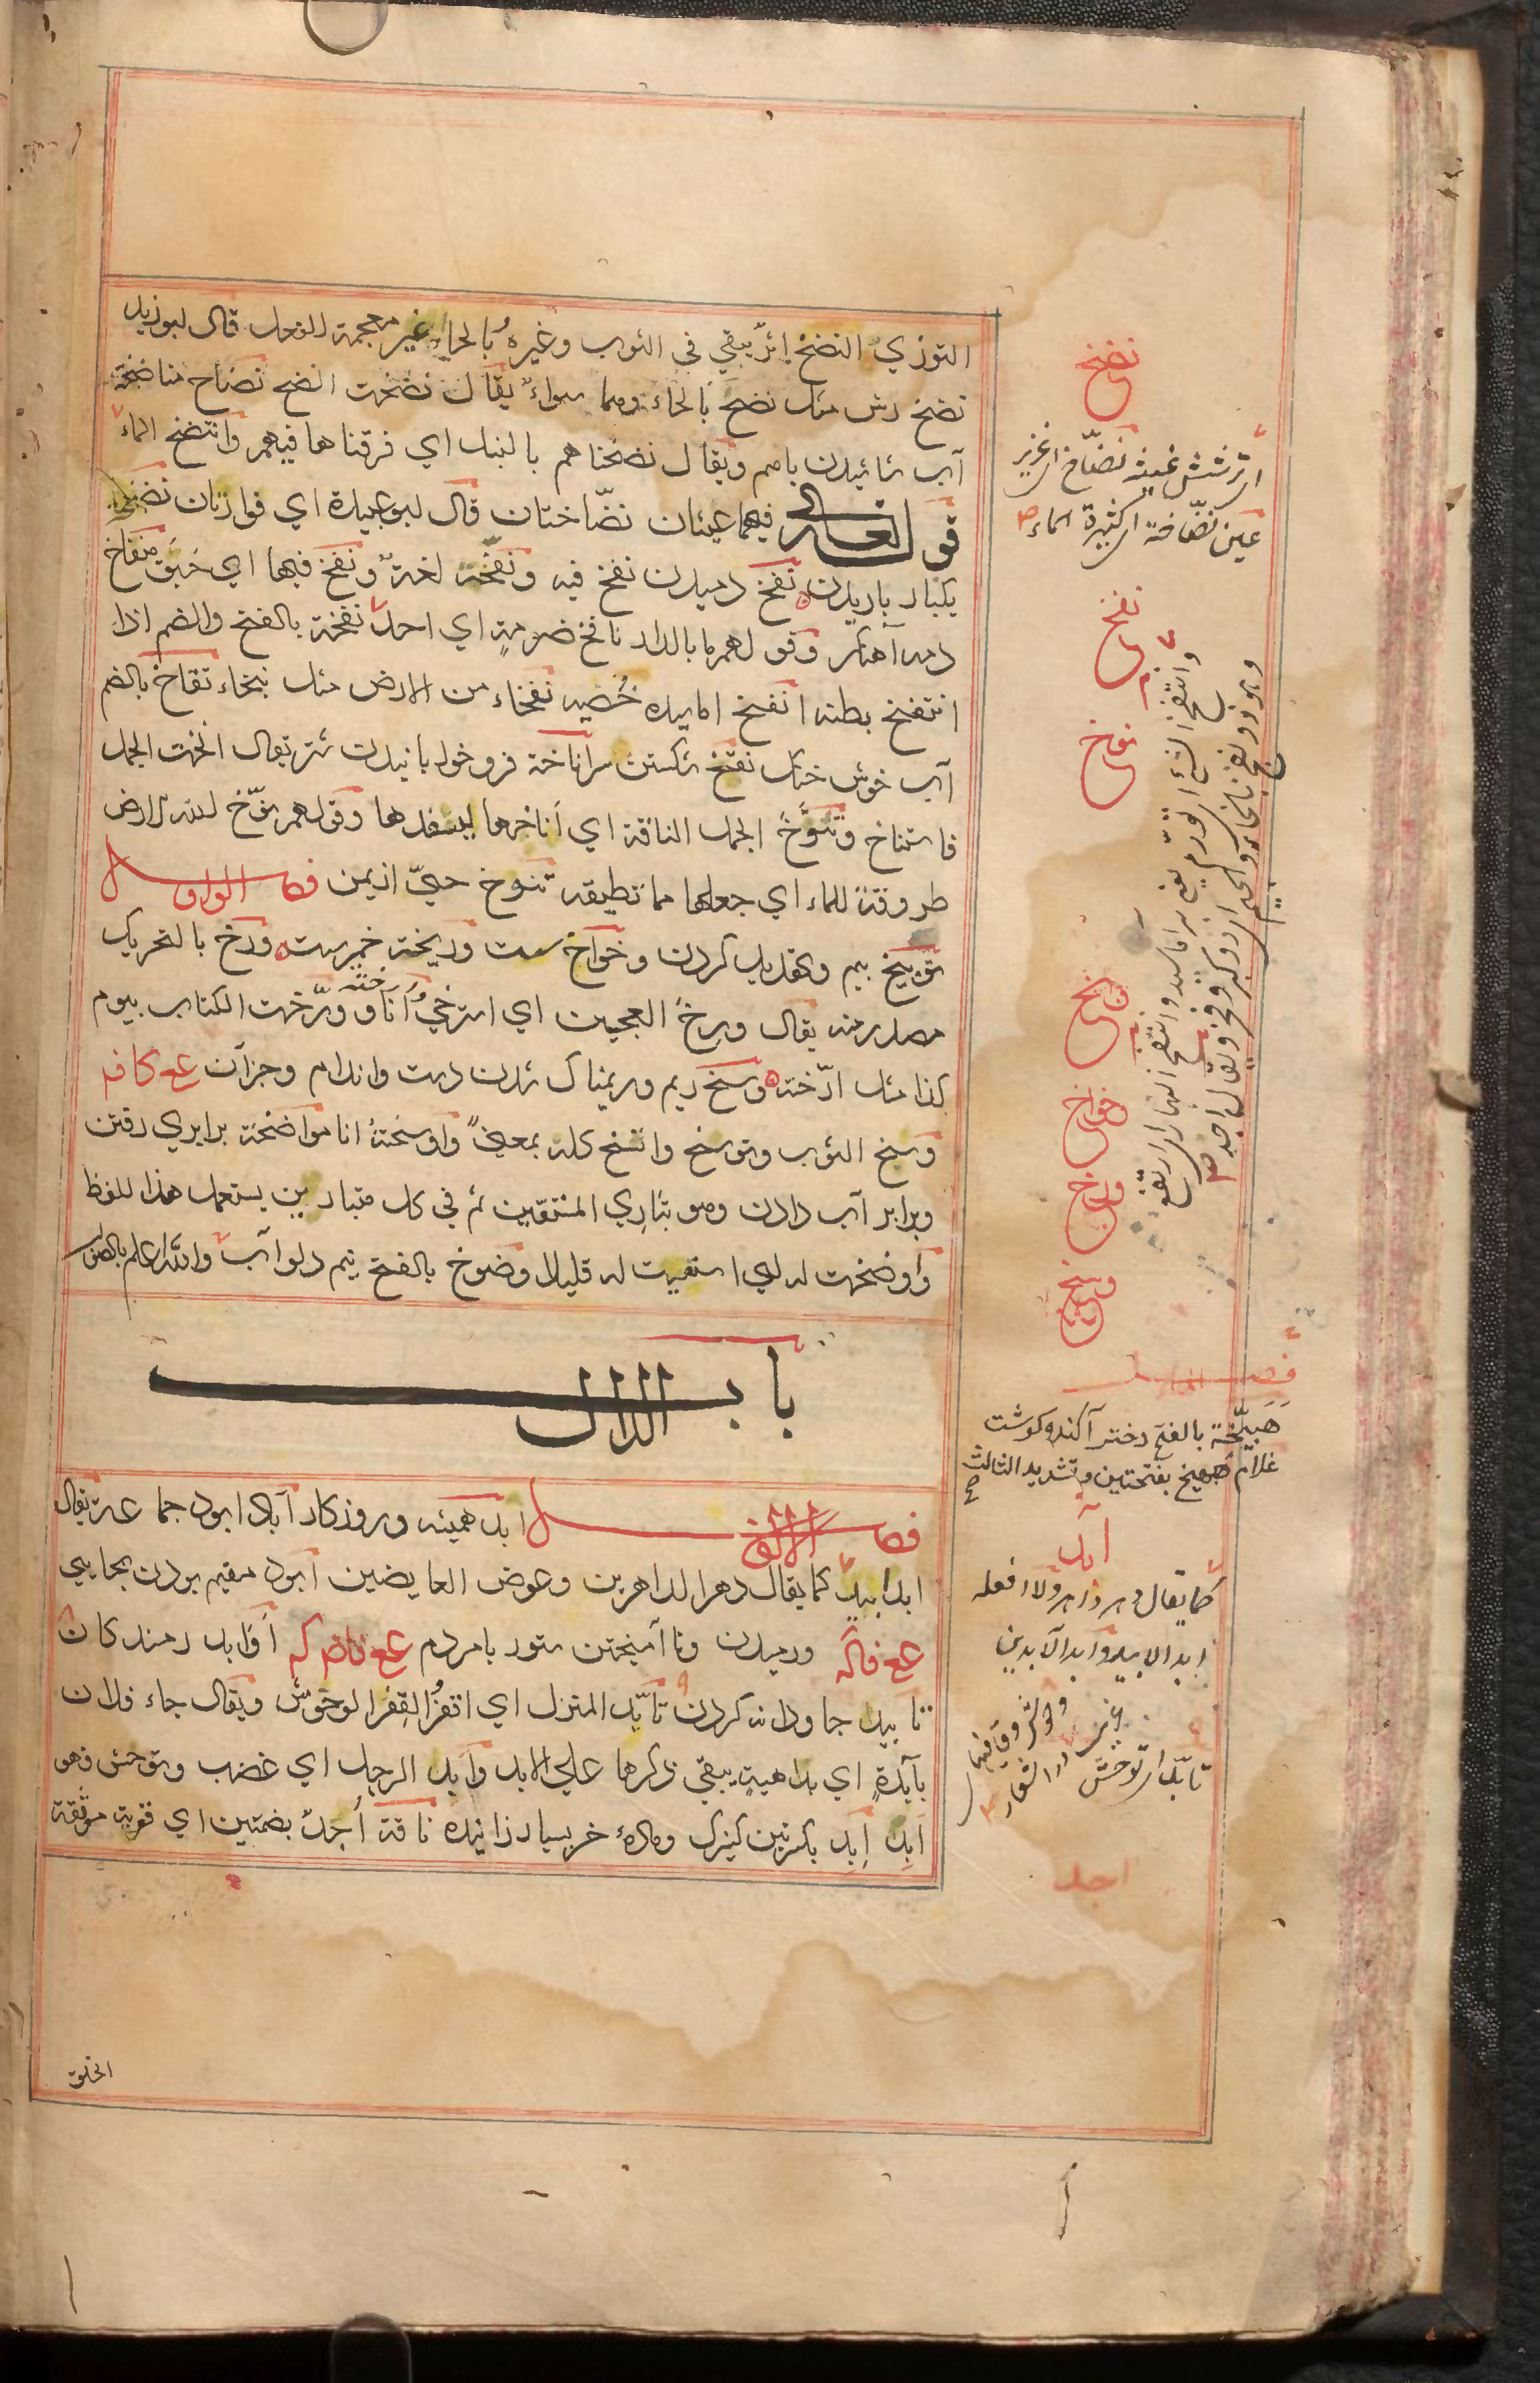 التوزي النضخ اثر يبقي في الثوب وغيره بالحاء غير معجمة الفعل قال ابو زيد
نضخ رش مثل نضح بالحاء وهما سواء يقال نضخت انضخ نضاخ مناضخة
آب پاشیدن باهم ويقال نضخناهم بالنبل اي فرقناها فيهم وانتضخ الماء
قوله تعالى فيهما عينان نضّاختان قال ابو عبيدة اي فوارتان نضخة
يكبار باريدن نفخ دميدن نفخ فيه ونفخه لغة ونفخ فيها اي حبق منفاخ
دمه آهنگر وقولهم ما بالدار نافخ ضرمة اي احد نفخة بالفتح والضم اذا
انتفخ بطنه انفخ اماسيده خصيه نفخاء من الارض مثل نبخاء نقاخ بالضم
آب خوش خنك نقخ شكستن سر اناخة فرو خوابانيدن شتر يقال انخت الجمل
فاستناخ وتنوّخ الجمل الناقة اي اناخها ليسفدها وقولهم نوّخ الله الارض
طروقة للماء اي جعلها مما تطيقه تنوخ حيّ از يمن فصل الواو
توبيخ بيم وتهديد كردن وخواخ سست وريخته خمير سست ورخ بالتحريك
مصدر منه يقال ورخ العجين اي استرخي واورخته انا وورّخت الكتاب بيوم
كذا مثل ارّخته وسخ ريم وريمناك شدن دست واندام وجز آن ع كا ف م
وسخ الثوب وتوسخ واتسخ كله بمعنى واوسخته انا مواضخة برابري رفتن
وبرابر آب دادن وهو تباري المستقين ثم في كل متباريين يستعمل هذا اللفظ
واوضخت له اي استقيت له قليلا وضوخ بالفتح نيم دلو آب والله اعلم بالصواب
باب الدال
فصل الالف ابد هميشه وروزكار آباد ابود جماعة يقال
ابد ابيد كما يقال دهر الداهرين وعوض العايضين ابود مقيم بودن بجايي
ورميدن ونا آميختن ستور با مردم اوابد رمندكان
تابيد جاودانه كردن تابّد المنزل اي اقفر الفه الوحوش ويقال جاء فلان
بآبدة اي بداهية يبقي ذكرها علي الابد وابد الرجل اي غضب وتوحش فهو
ابد إبد بكسرتين كنيزك وماده خر بسيار زاينده ناقة اجد بضمتين اي قوية موثقة
نضخ
اي ترشش غيث نضّاخ اي غزير
عين نضّاخة اي كثيرة الماء
نفخ
نوخ
وانتفخ الشئ اي تورم
وانتفخ النهار اي ارتفع
وبخ
وخواخ
ورخ
وسخ
وضخ
فصل الهاء
هبيّخة بالفتح دختر آكنده كوشت
غلام هبيخ بفتحتين وتشديد الثالث
ابد
كما يقال دهر داهر ولا افعله
ابد الابيد وابد الآبدين
تابّد اي توحش
اجد
الخلق